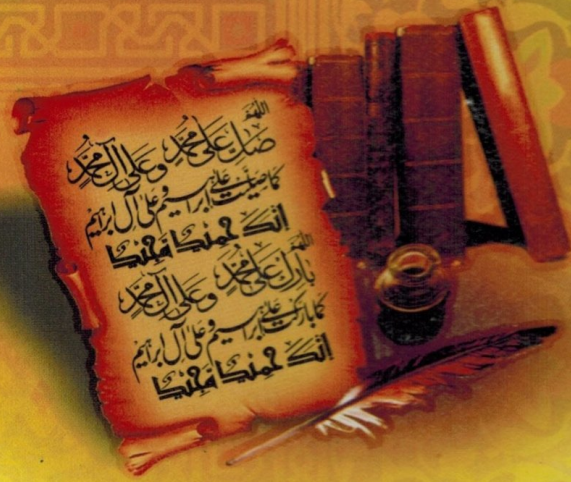 اللهم
صل على محمد وعلى آل محمد
كما صليت على إبراهيم وعلى آل إبراهيم
إنك حميد مجيد
اللهم
بارك على محمد وعلى آل محمد
كما باركت على إبراهيم وعلى آل إبراهيم
إنك حميد مجيد